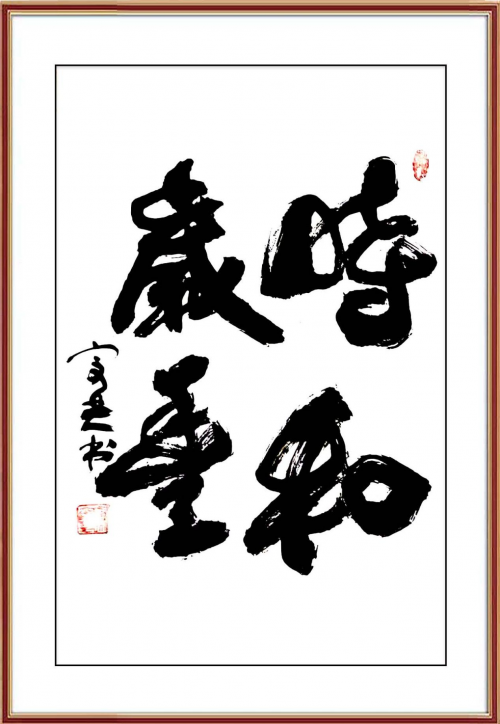 時和
歲豐
书